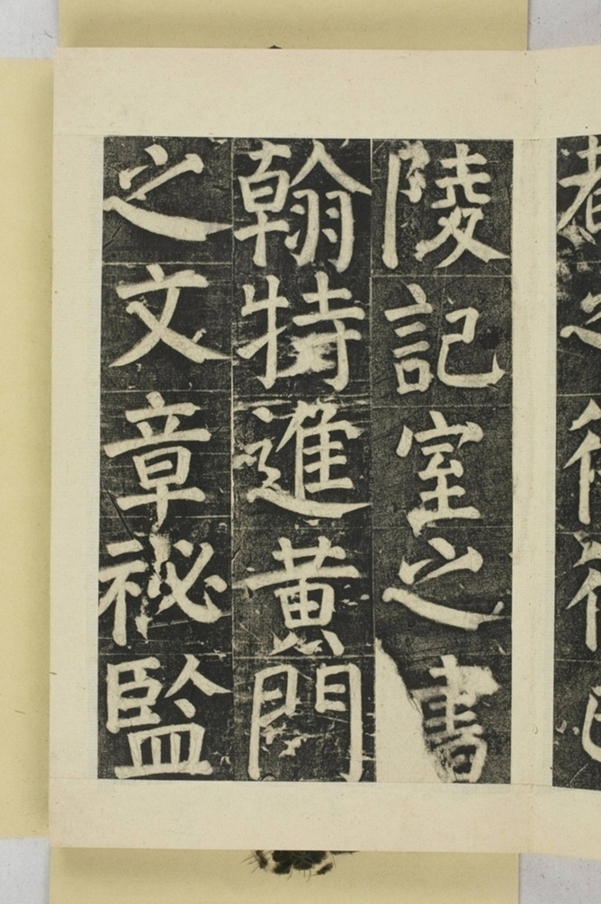 陵記室之書
翰特進黃門
之文章祕監